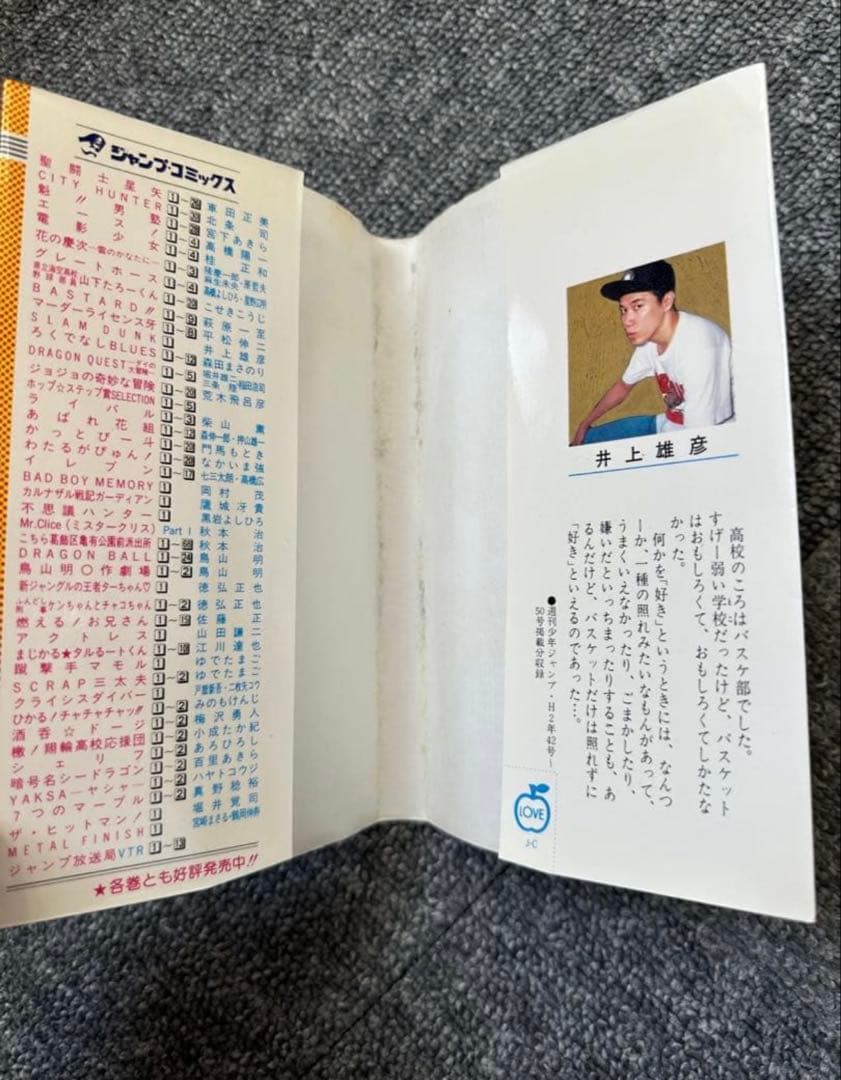 ジャンプ・コミックス
聖闘士星矢 1~28 車田正美
CITY HUNTER 北条司
魁!!男塾 宮下あきら
エース! 高橋陽一
電影少女 桂正和
花の慶次―雲のかなたに―
グレートホース
県立海空高校野球部員山下たろーくん こせきこうじ
BASTARD!! 萩原一至
マーダーライセンス牙 平松伸二
SLAM DUNK 1 井上雄彦
ろくでなしBLUES 森田まさのり
DRAGON QUEST―ダイの大冒険―
ジョジョの奇妙な冒険 荒木飛呂彦
ホップ☆ステップ賞SELECTION
ライバル 柴山薫
あばれ花組
かっとび一斗 門馬もとき
わたるがぴゅん! なかいま強
イレブン 七三太朗・高橋広
BAD BOY MEMORY 岡村茂
カルナザル戦記ガーディアン 鷹城冴貴
不思議ハンター 黒岩よしひろ
Mr.Clice(ミスタークリス) Part 1 秋本治
こちら葛飾区亀有公園前派出所 秋本治
DRAGON BALL 鳥山明
鳥山明○作劇場 1~2 鳥山明
新ジャングルの王者ターちゃん♡ 1 徳弘正也
ふんどし刑事ケンちゃんとチャコちゃん 1~2 徳弘正也
燃える!お兄さん 1~19 佐藤正
アクトレス 1 山田謙二
まじかる★タルるートくん 江川達也
蹴撃手マモル ゆでたまご
SCRAP三太夫 ゆでたまご
クライシスダイバー 戸舘新吾・二枚矢コウ
ひかる!チャチャチャッ!! みのもけんじ
酒呑☆ドージ 梅沢勇人
檄!翔輪高校応援団 小成たか紀
シェリフ あろひろし
暗号名シードラゴン 百里あきら
YAKSA―ヤシャ― ハヤトコウジ
7つのマーブル 真野稔裕
ザ・ヒットマン! 堀井覚司
METAL FINISH 宮崎まさる・鶴岡伸寿
ジャンプ放送局VTR 1~13
★各巻とも好評発売中!!
井上雄彦
高校のころはバスケ部でした。
すげー弱い学校だったけど、バスケット
はおもしろくて、おもしろくてしかたな
かった。
何かを「好き」というときには、なんつ
ーか、一種の照れみたいなもんがあって、
うまくいえなかったり、ごまかしたり、
嫌いだといっちまったりすることも、あ
るんだけど、バスケットだけは照れずに
「好き」といえるのであった…。
●週刊少年ジャンプ・H2年42号~
50号掲載分収録
LOVE
J・C